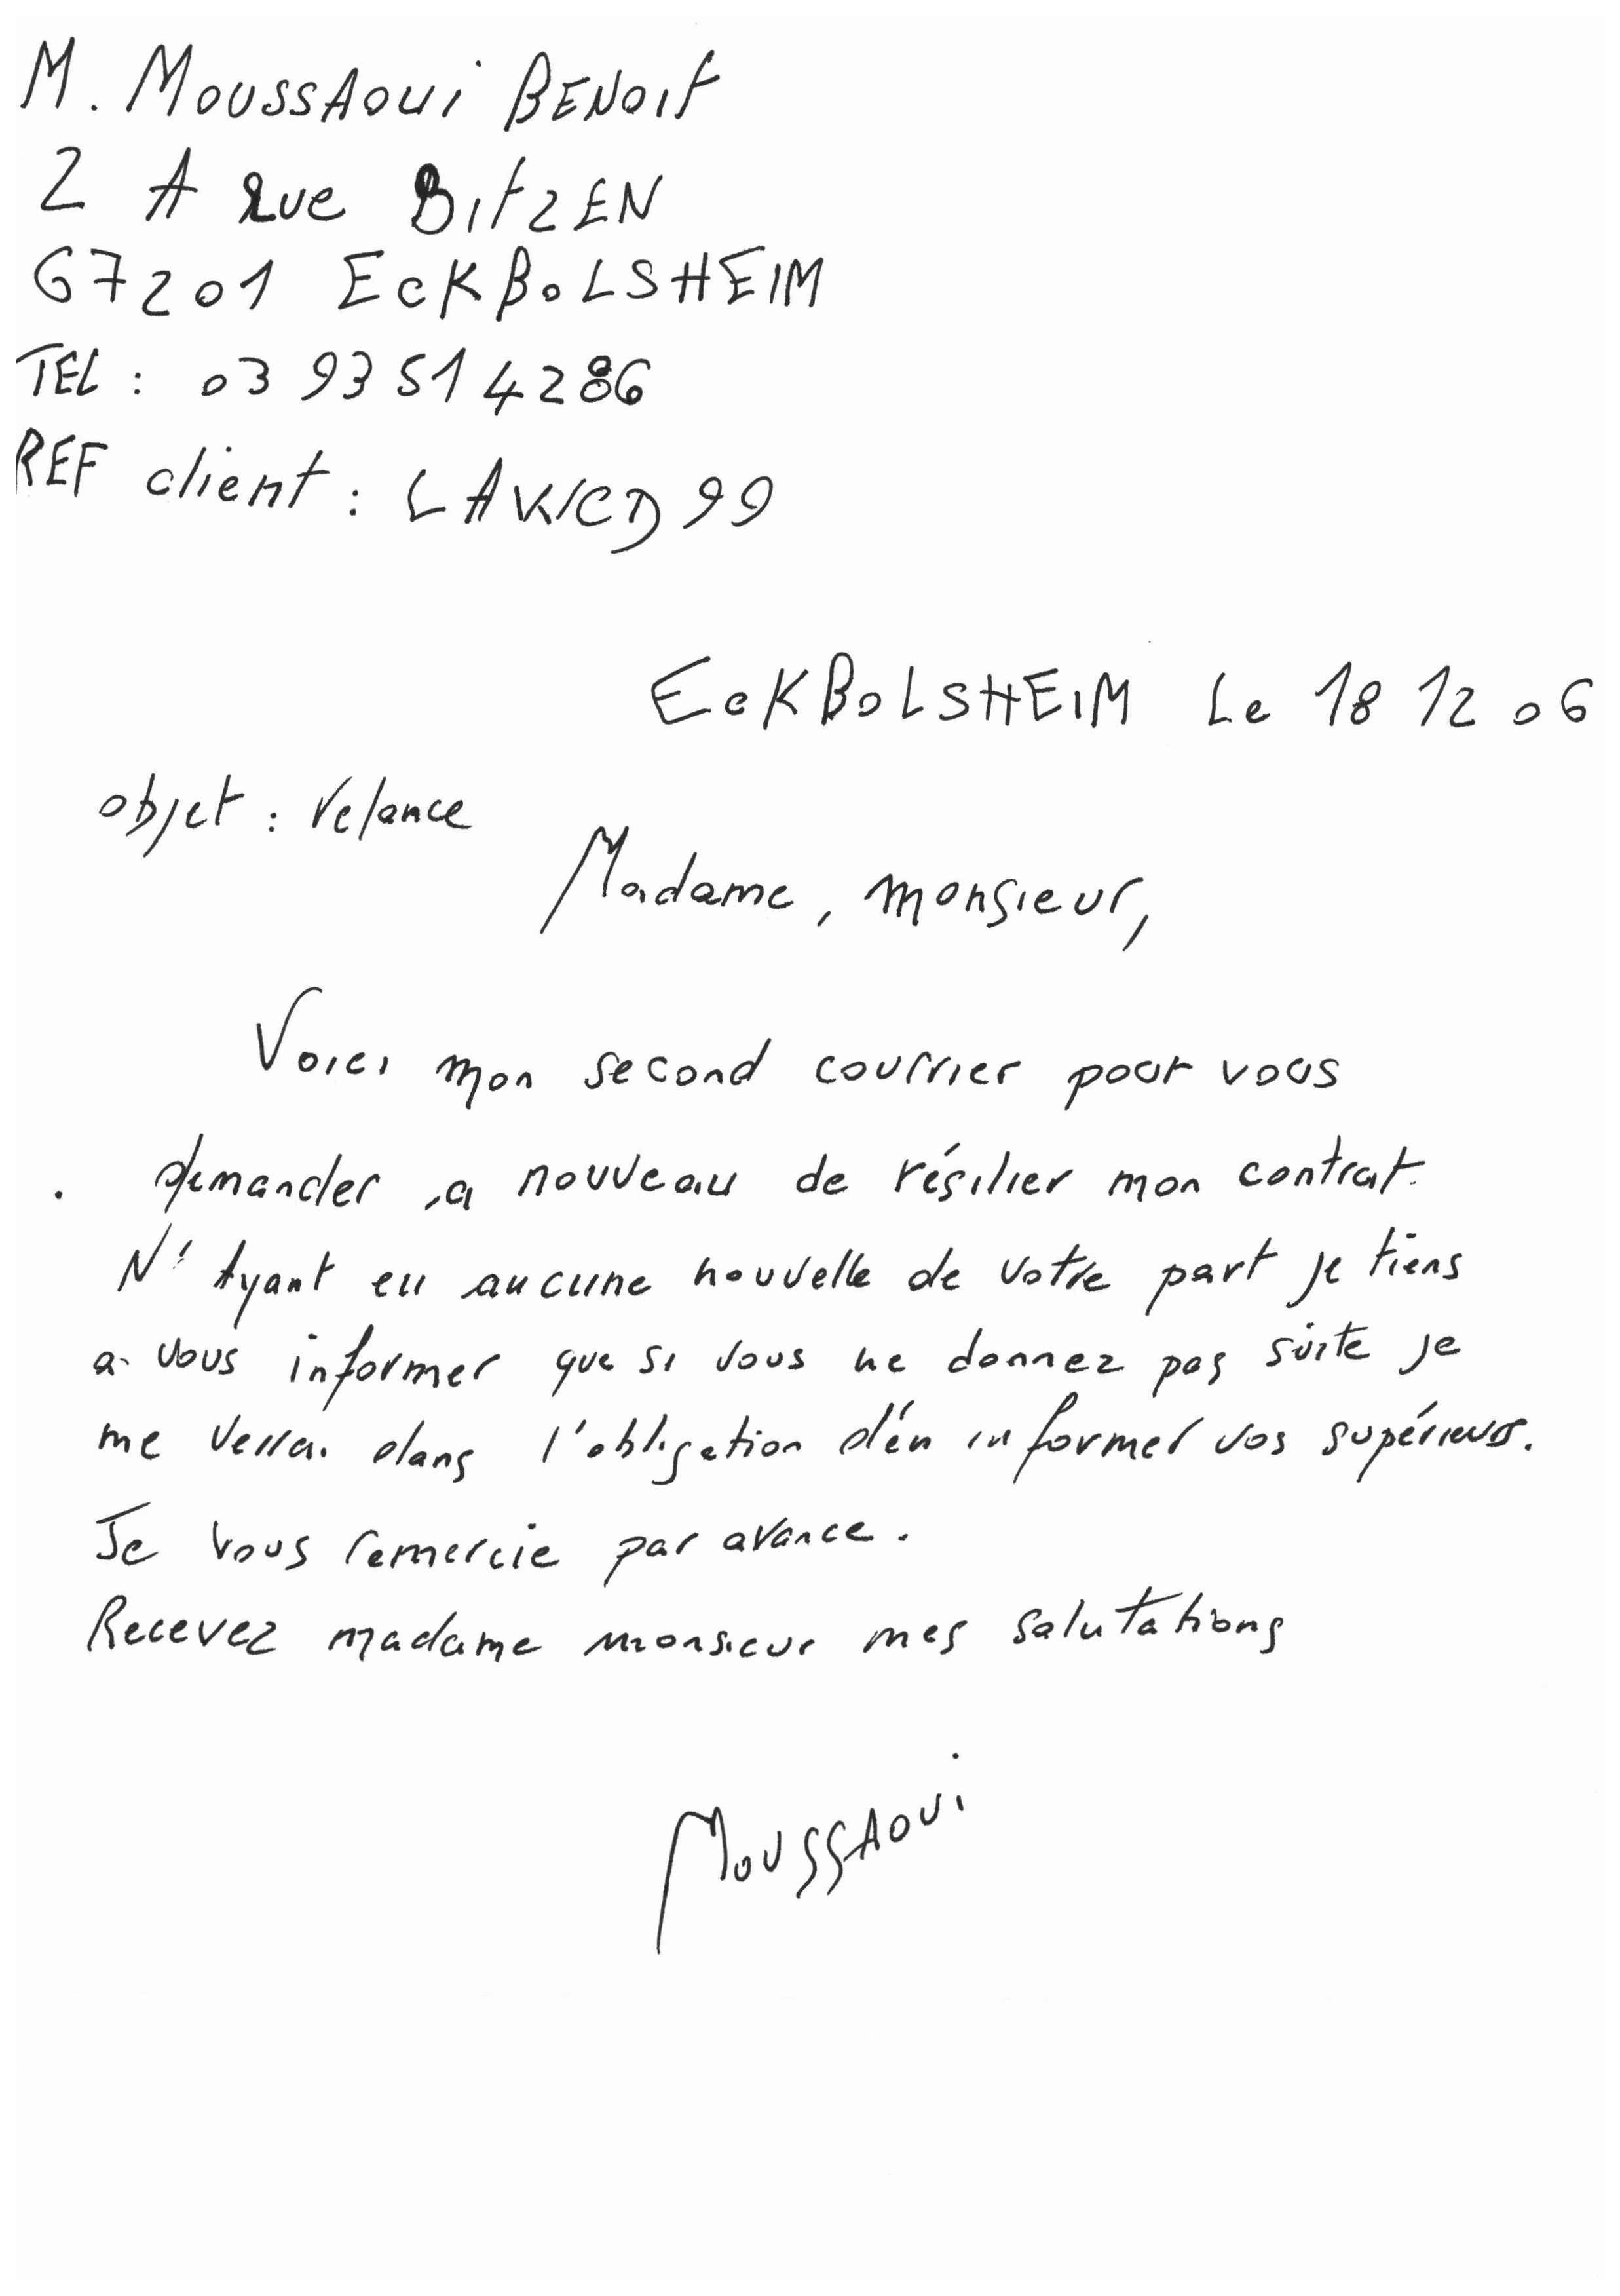 M. MOUSSAOUi BENOIT
2 A Rue BITZEN
67201 ECKBOLSHEIM
TEL : 03 93 51 42 86
REF client : LAWCD99
ECKBOLSHEIM Le 18 12 06
objet : relance
Madame, monsieur,
Voici mon second courrier pour vous
demander a nouveau de résilier mon contrat.
N' Ayant eu aucune nouvelle de votre part je tiens
a vous informer que si vous ne donnez pas suite je
me verrai dans l'obligation d'en informer vos supérieurs.
Je vous remercie par avance.
Recevez madame monsieur mes salutations
MOUSSAOUi